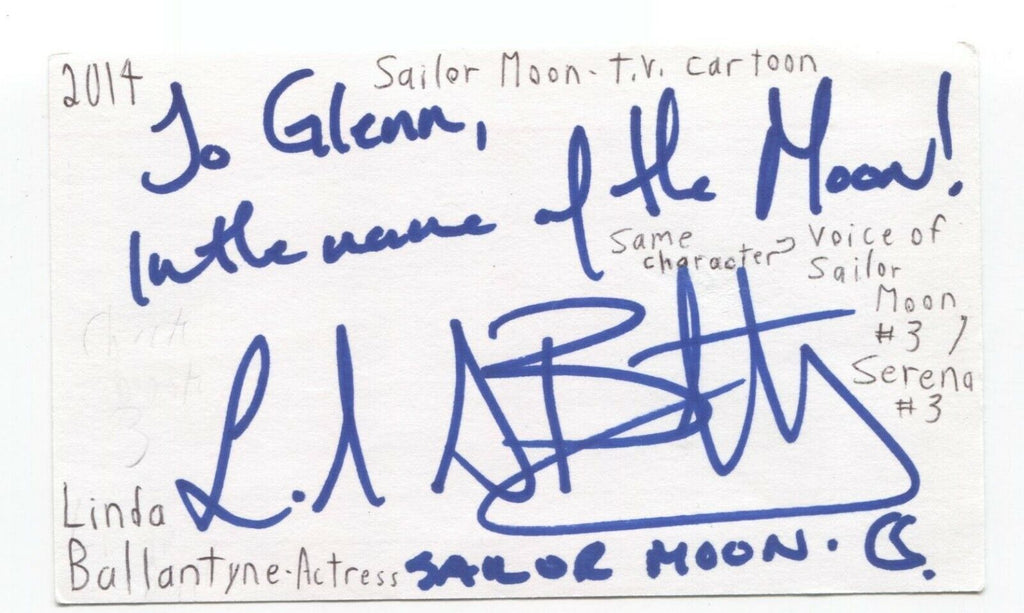 2014
Sailor Moon - t.v. cartoon
To Glenn,
In the name of the Moon!
Same character
Voice of
Sailor
Moon
#3 /
Serena
#3
3
Linda
Ballantyne - Actress
SAILOR MOON.